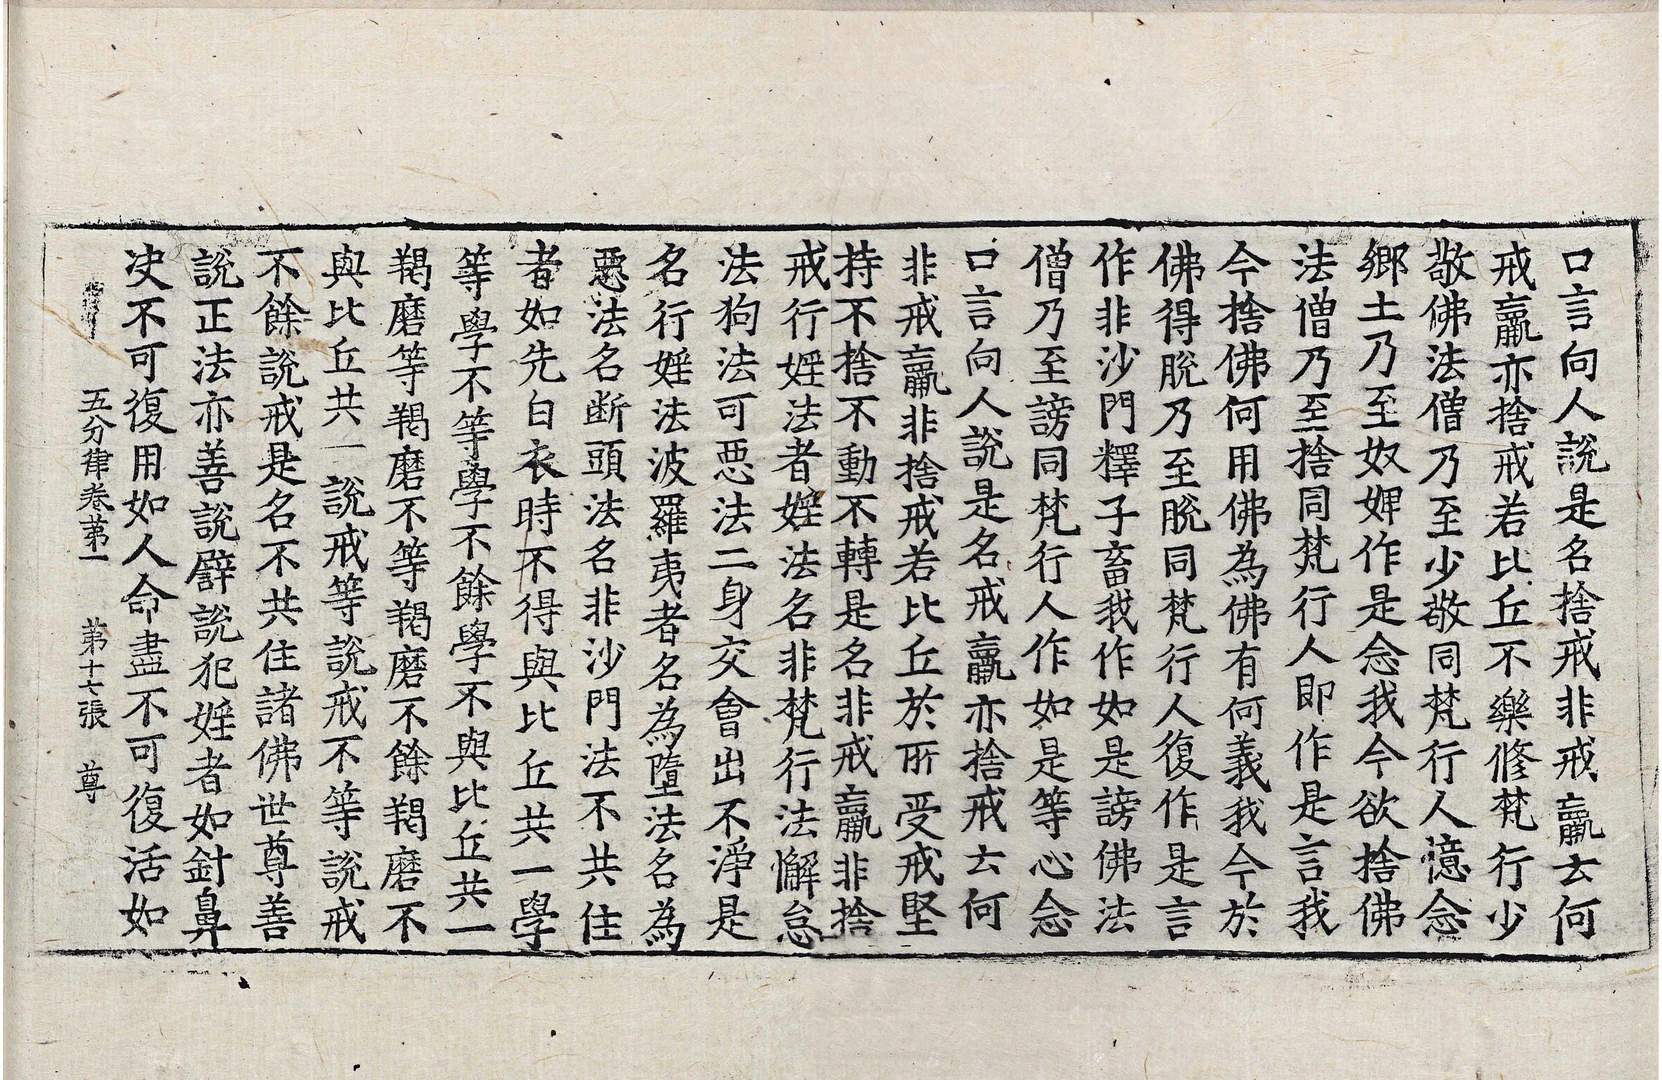 口言向人說是名捨戒非戒羸云何
戒羸亦捨戒若比丘不樂修梵行少
敬佛法僧乃至少敬同梵行人憶念
鄉土乃至奴婢作是念我今欲捨佛
法僧乃至捨同梵行人即作是言我
今捨佛何用佛為佛有何義我今於
佛得脫乃至脫同梵行人復作是言
作非沙門釋子畜我作如是謗佛法
僧乃至謗同梵行人作如是等心念
口言向人說是名戒羸亦捨戒云何
非戒羸非捨戒若比丘於所受戒堅
持不捨不動不轉是名非戒羸非捨
戒行婬法者婬法名非梵行法懈怠
法狗法可惡法二身交會出不淨是
名行婬法波羅夷者名為墮法名為
惡法名断頭法名非沙門法不共住
者如先白衣時不得與比丘共一學
等學不等學不餘學不與比丘共一
羯磨等羯磨不等羯磨不餘羯磨不
與比丘共一說戒等說戒不等說戒
不餘說戒是名不共住諸佛世尊善
說正法亦善說譬說犯婬者如針鼻
决不可復用如人命盡不可復活如
五分律卷第一 第十七張 尊